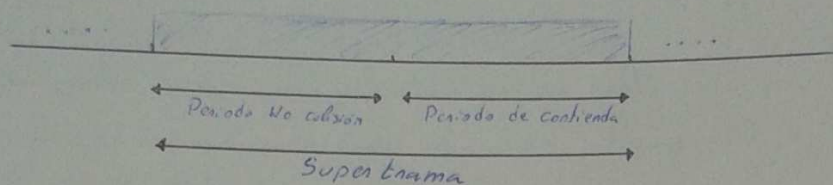 .....
....
Periodo No colisión
Periodo de contienda
Super trama